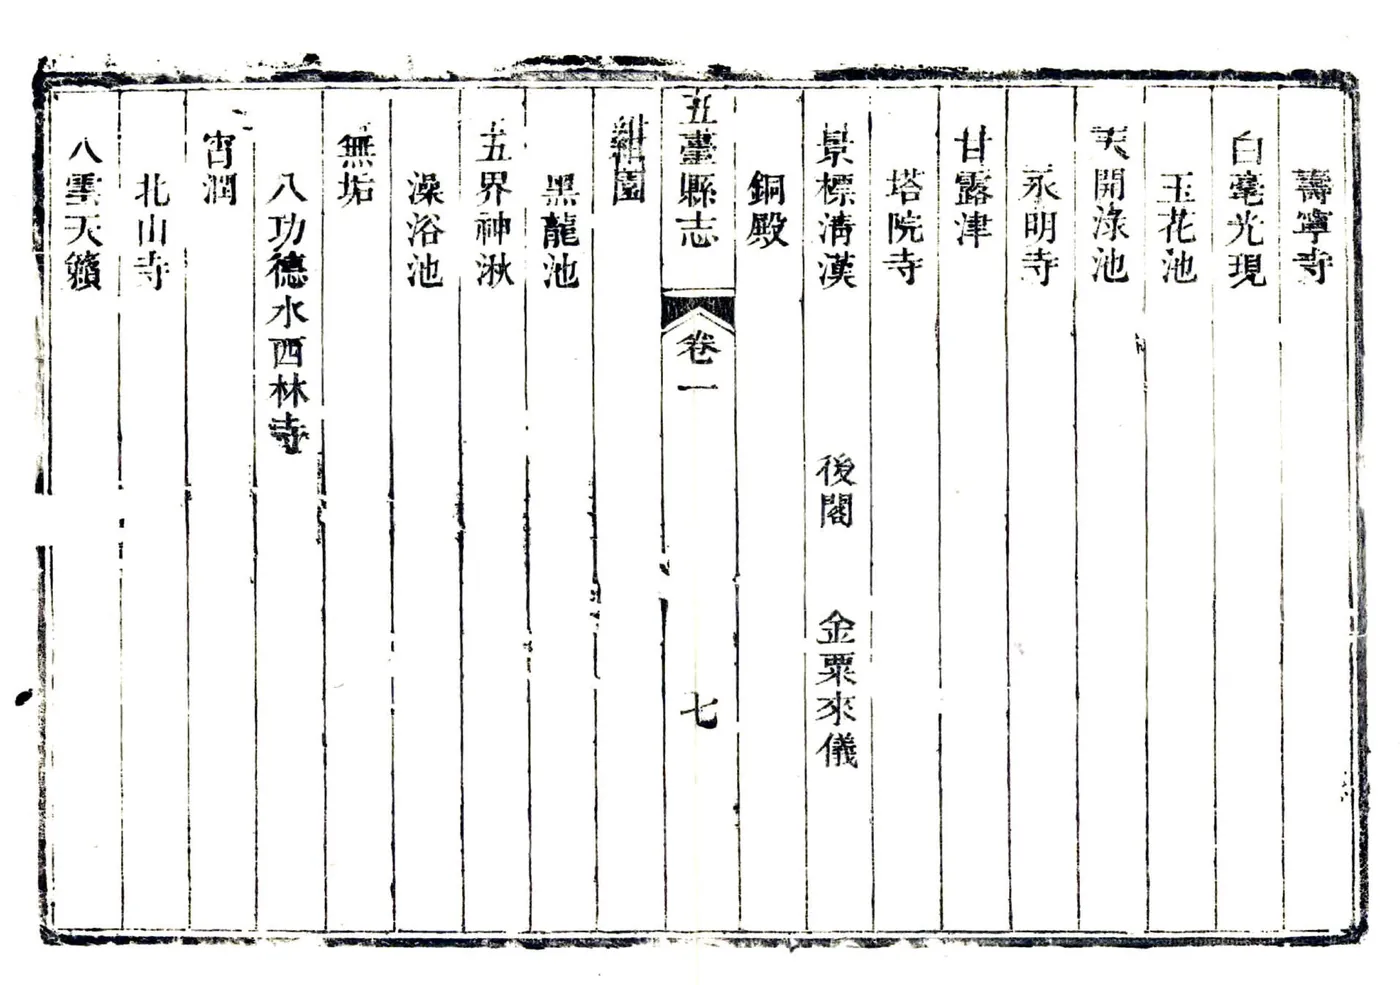 壽寧寺
白毫光現
玉花池
天開淥池
永明寺
甘露津
塔院寺
景標清漢 後閣 金粟來儀
銅殿
五臺縣志 卷一 七
紺園
黑龍池
五界神湫
澡浴池
無垢
八功德水西林寺
宵潤
北山寺
八雲天籟